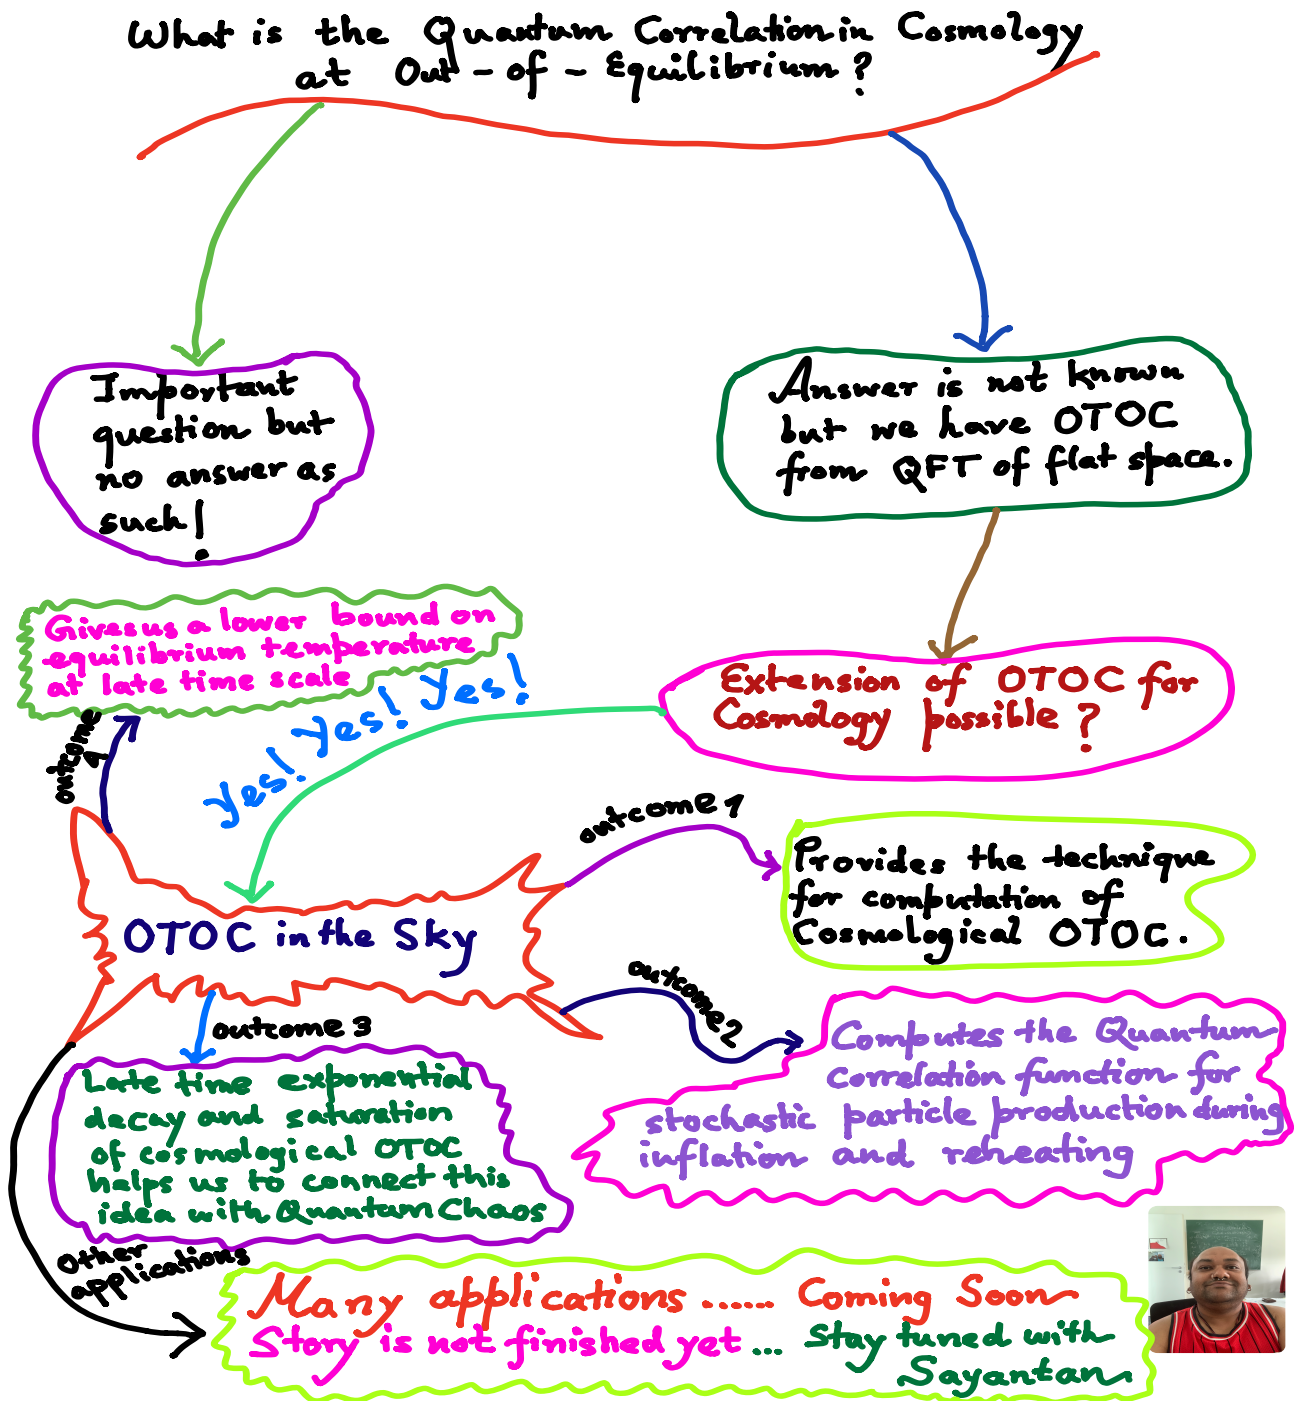 What is the Quantum Correlation in Cosmology
at Out-of-Equilibrium?
Important
question but
no answer as
such!
Answer is not known
but we have OTOC
from QFT of flat space.
Gives us a lower bound on
equilibrium temperature
at late time scale
Extension of OTOC for
Cosmology possible?
Yes! Yes! Yes!
outcome
4
outcome 1
Provides the technique
for computation of
Cosmological OTOC.
OTOC in the Sky
outcome 2
Computes the Quantum
Correlation function for
stochastic particle production during
inflation and reheating
outcome 3
Late time exponential
decay and saturation
of cosmological OTOC
helps us to connect this
idea with Quantum Chaos
Other
applications
Many applications ...... Coming Soon
Story is not finished yet ... Stay tuned with
Sayantan